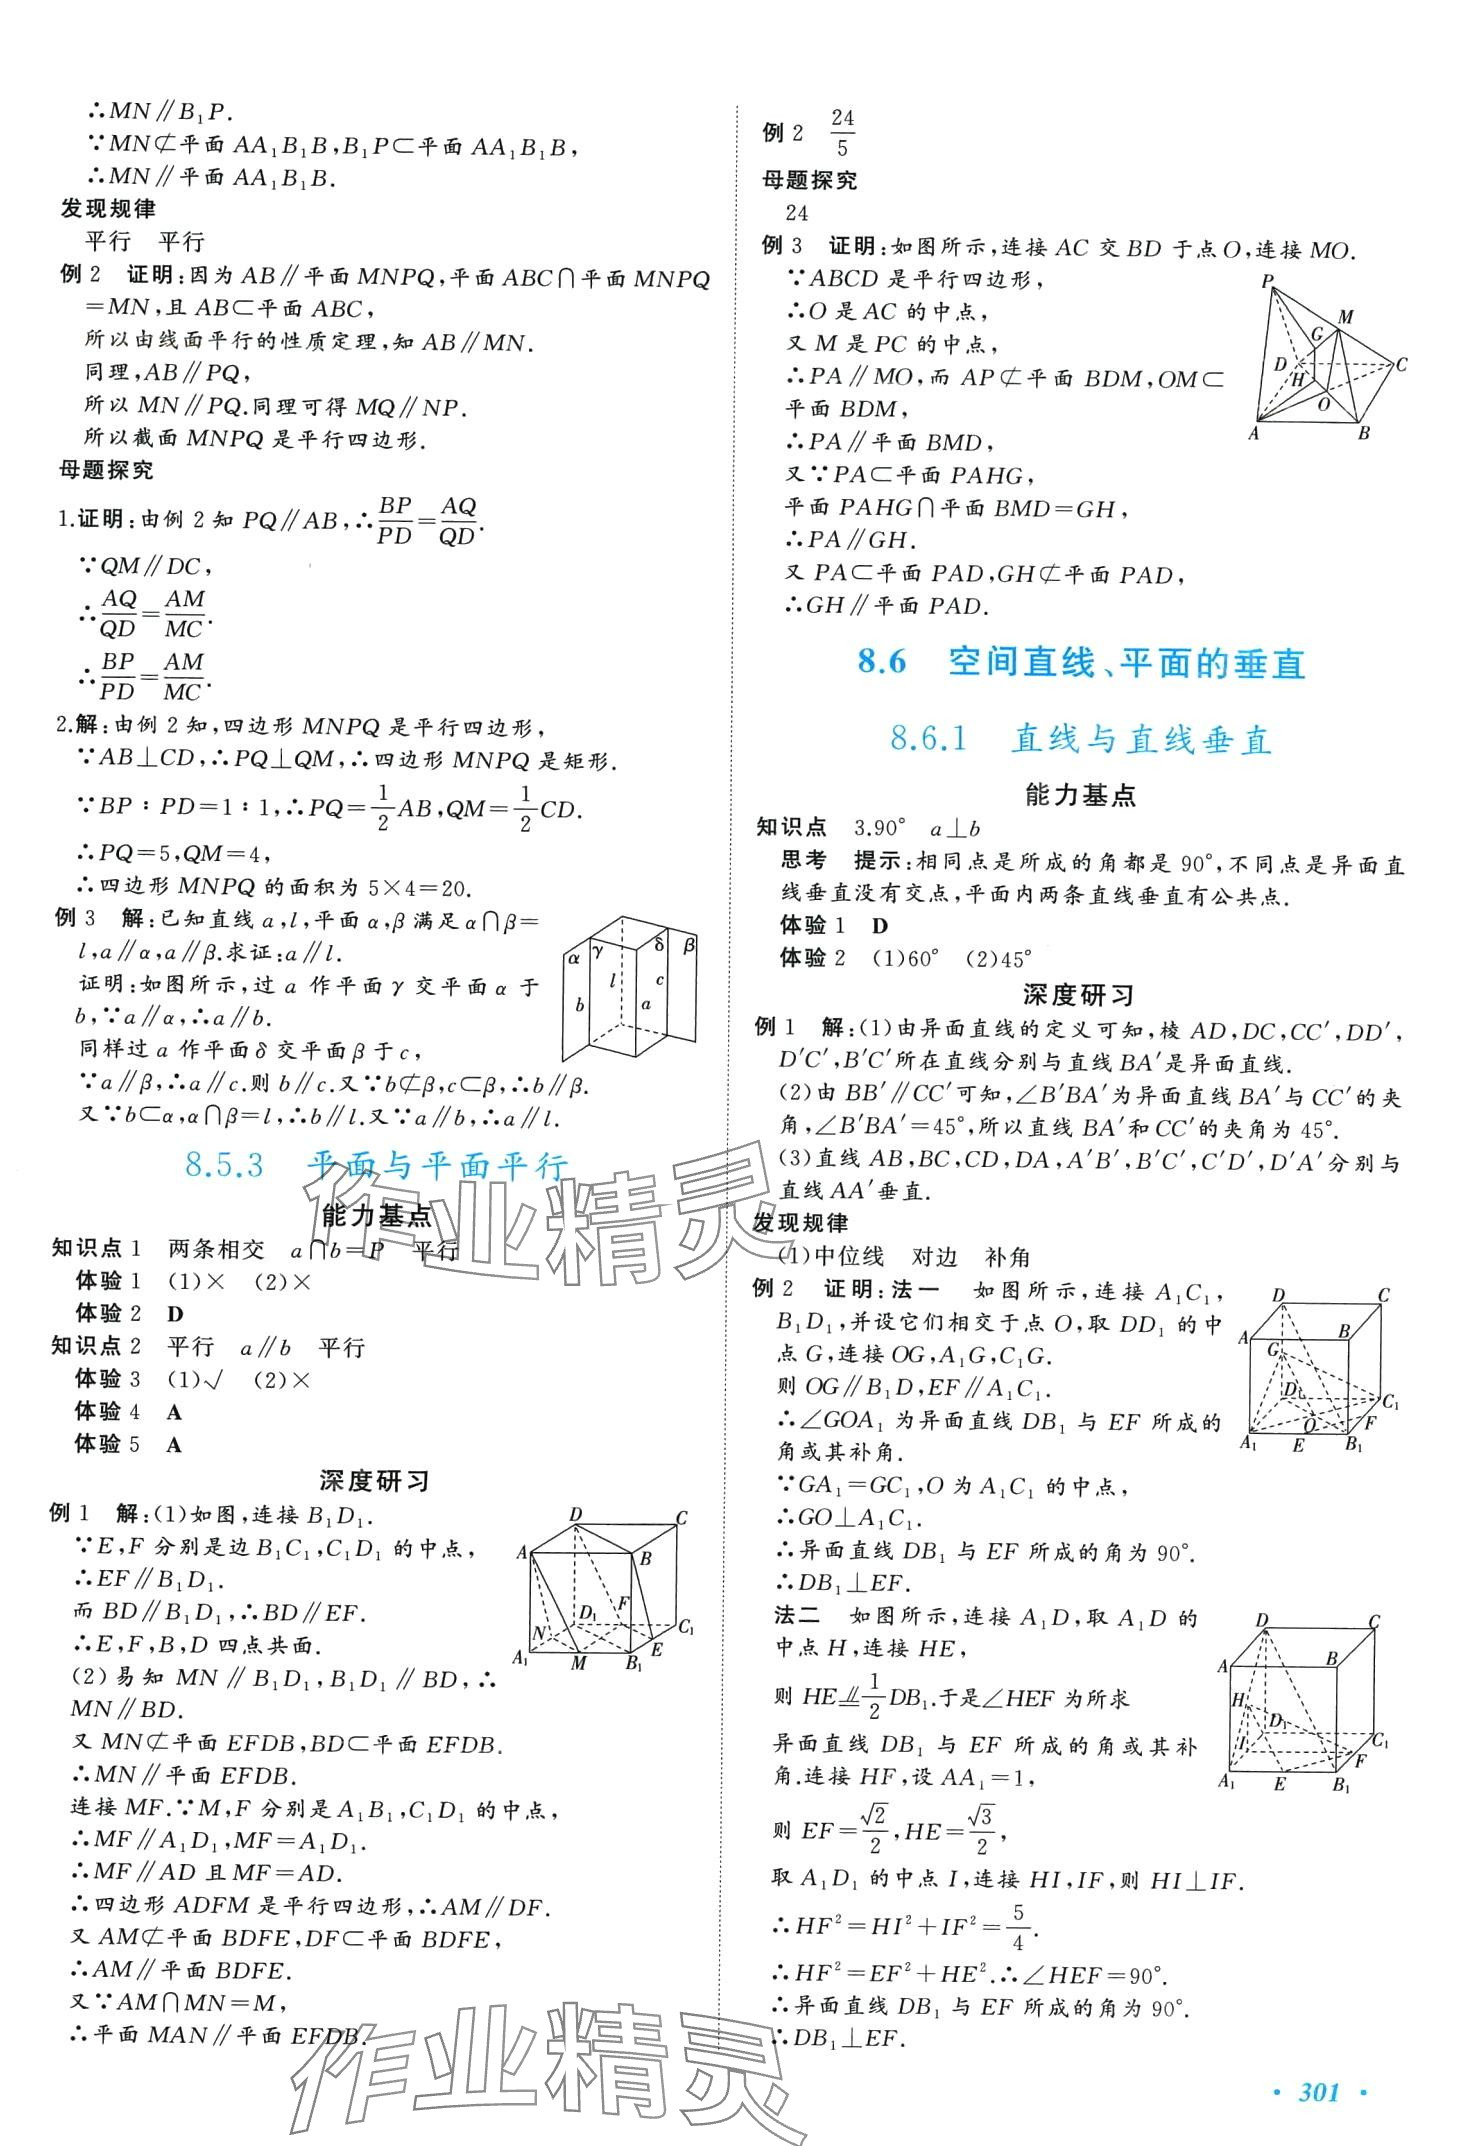 ∴MN∥B₁P.
∵MN⊄平面 AA₁B₁B,B₁P⊂平面 AA₁B₁B,
∴MN∥平面 AA₁B₁B.
发现规律
平行　平行
例 2　证明:因为 AB∥平面 MNPQ,平面 ABC∩平面 MNPQ
=MN,且 AB⊂平面 ABC,
所以由线面平行的性质定理,知 AB∥MN.
同理,AB∥PQ,
所以 MN∥PQ.同理可得 MQ∥NP.
所以截面 MNPQ 是平行四边形.
母题探究
1.证明:由例 2 知 PQ∥AB,∴BP/PD=AQ/QD.
∵QM∥DC,
∴AQ/QD=AM/MC.
∴BP/PD=AM/MC.
2.解:由例 2 知,四边形 MNPQ 是平行四边形,
∵AB⊥CD,∴PQ⊥QM,∴四边形 MNPQ 是矩形.
∵BP∶PD=1∶1,∴PQ=1/2AB,QM=1/2CD.
∴PQ=5,QM=4,
∴四边形 MNPQ 的面积为 5×4=20.
例 3　解:已知直线 a,l,平面 α,β 满足 α∩β=
l,a∥α,a∥β.求证:a∥l.
证明:如图所示,过 a 作平面 γ 交平面 α 于
b,∵a∥α,∴a∥b.
同样过 a 作平面 δ 交平面 β 于 c,
∵a∥β,∴a∥c.则 b∥c.又∵b⊄β,c⊂β,∴b∥β.
又∵b⊂α,α∩β=l,∴b∥l.又∵a∥b,∴a∥l.
α γ δ β
b l a c
8.5.3　平面与平面平行
能力基点
知识点 1　两条相交　a∩b=P　平行
体验 1　(1)×　(2)×
体验 2　D
知识点 2　平行　a∥b　平行
体验 3　(1)√　(2)×
体验 4　A
体验 5　A
深度研习
例 1　解:(1)如图,连接 B₁D₁.
∵E,F 分别是边 B₁C₁,C₁D₁ 的中点,
∴EF∥B₁D₁.
而 BD∥B₁D₁,∴BD∥EF.
∴E,F,B,D 四点共面.
(2)易知 MN∥B₁D₁,B₁D₁∥BD,∴
MN∥BD.
又 MN⊄平面 EFDB,BD⊂平面 EFDB.
∴MN∥平面 EFDB.
连接 MF.∵M,F 分别是 A₁B₁,C₁D₁ 的中点,
∴MF∥A₁D₁,MF=A₁D₁.
∴MF∥AD 且 MF=AD.
∴四边形 ADFM 是平行四边形,∴AM∥DF.
又 AM⊄平面 BDFE,DF⊂平面 BDFE,
∴AM∥平面 BDFE.
又∵AM∩MN=M,
∴平面 MAN∥平面 EFDB.
D C
A B
F
N D₁ C₁
E
A₁ M B₁
例 2　24/5
母题探究
24
例 3　证明:如图所示,连接 AC 交 BD 于点 O,连接 MO.
∵ABCD 是平行四边形,
∴O 是 AC 的中点,
又 M 是 PC 的中点,
∴PA∥MO,而 AP⊄平面 BDM,OM⊂
平面 BDM,
∴PA∥平面 BMD,
又∵PA⊂平面 PAHG,
平面 PAHG∩平面 BMD=GH,
∴PA∥GH.
又 PA⊂平面 PAD,GH⊄平面 PAD,
∴GH∥平面 PAD.
P
G M
D H C
O
A B
8.6　空间直线、平面的垂直
8.6.1　直线与直线垂直
能力基点
知识点　3.90°　a⊥b
思考　提示:相同点是所成的角都是 90°,不同点是异面直
线垂直没有交点,平面内两条直线垂直有公共点.
体验 1　D
体验 2　(1)60°　(2)45°
深度研习
例 1　解:(1)由异面直线的定义可知,棱 AD,DC,CC′,DD′,
D′C′,B′C′所在直线分别与直线 BA′是异面直线.
(2)由 BB′∥CC′可知,∠B′BA′为异面直线 BA′与 CC′的夹
角,∠B′BA′=45°,所以直线 BA′和 CC′的夹角为 45°.
(3)直线 AB,BC,CD,DA,A′B′,B′C′,C′D′,D′A′分别与
直线 AA′垂直.
发现规律
(1)中位线　对边　补角
例 2　证明:法一　如图所示,连接 A₁C₁,
B₁D₁,并设它们相交于点 O,取 DD₁ 的中
点 G,连接 OG,A₁G,C₁G.
则 OG∥B₁D,EF∥A₁C₁.
∴∠GOA₁ 为异面直线 DB₁ 与 EF 所成的
角或其补角.
∵GA₁=GC₁,O 为 A₁C₁ 的中点,
∴GO⊥A₁C₁.
∴异面直线 DB₁ 与 EF 所成的角为 90°.
∴DB₁⊥EF.
D C
A B
G
D₁ C₁
O F
A₁ E B₁
法二　如图所示,连接 A₁D,取 A₁D 的
中点 H,连接 HE,
则 HE⫽1/2DB₁.于是∠HEF 为所求
异面直线 DB₁ 与 EF 所成的角或其补
角.连接 HF,设 AA₁=1,
则 EF=√2/2,HE=√3/2,
取 A₁D₁ 的中点 I,连接 HI,IF,则 HI⊥IF.
∴HF²=HI²+IF²=5/4.
∴HF²=EF²+HE².∴∠HEF=90°.
∴异面直线 DB₁ 与 EF 所成的角为 90°.
∴DB₁⊥EF.
D C
A B
H
D₁ C₁
I F
A₁ E B₁
作业精灵
作业精灵
· 301 ·